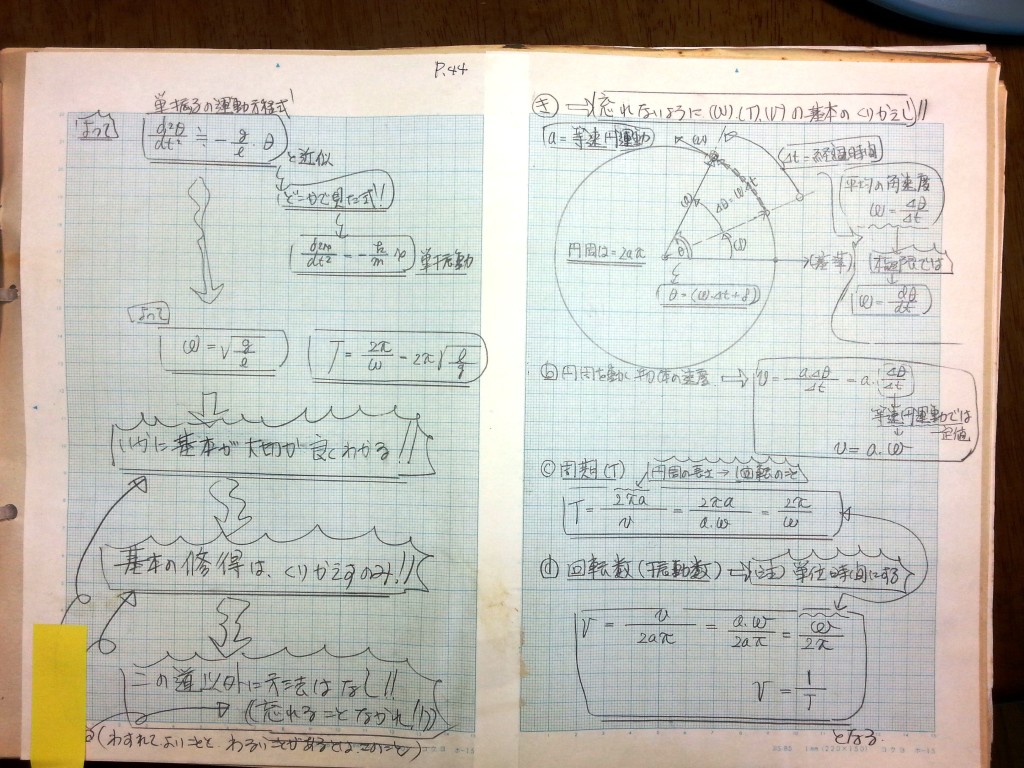 P.44
単振子の運動方程式
よって
d²θ/dt² ≒ -g/ℓ・θ
と近似
どこかで見た式!
d²x/dt² = -k/m x 単振動
よって
ω = √g/ℓ
T = 2π/ω - 2π√ℓ/g
いかに基本が大切が良くわかる!!
基本の修得は、くりかえすのみ!!
この道以外に方法はなし!!
(忘れることなかれ!!)
(わすれてよいことと わるいことがあるとは、このこと)
き ⇒ 忘れないように (ω),(T),(ν)の基本のくりかえし!!
a = 等速円運動
Δt =
Δθ = ω・Δt
平均の角速度
ω = Δθ/Δt
円周は = 2aπ
θ
(基準)
極限では
θ = (ω・Δt + δ)
ω = dθ/dt
ⓑ 円周を動く物体の速度 ⇒ v = a・Δθ/Δt = a・(Δθ/Δt)
等速円運動では
一定値
v = a・ω
ⓒ 周期(T) 円周の長さ → 1回転のこと
T = 2πa/v = 2πa/a・ω = 2π/ω
ⓓ 回転数(振動数) ⇒ (注) 単位時間にする
ν = v/2aπ = a・ω/2aπ = ω/2π
ν = 1/T
となる.